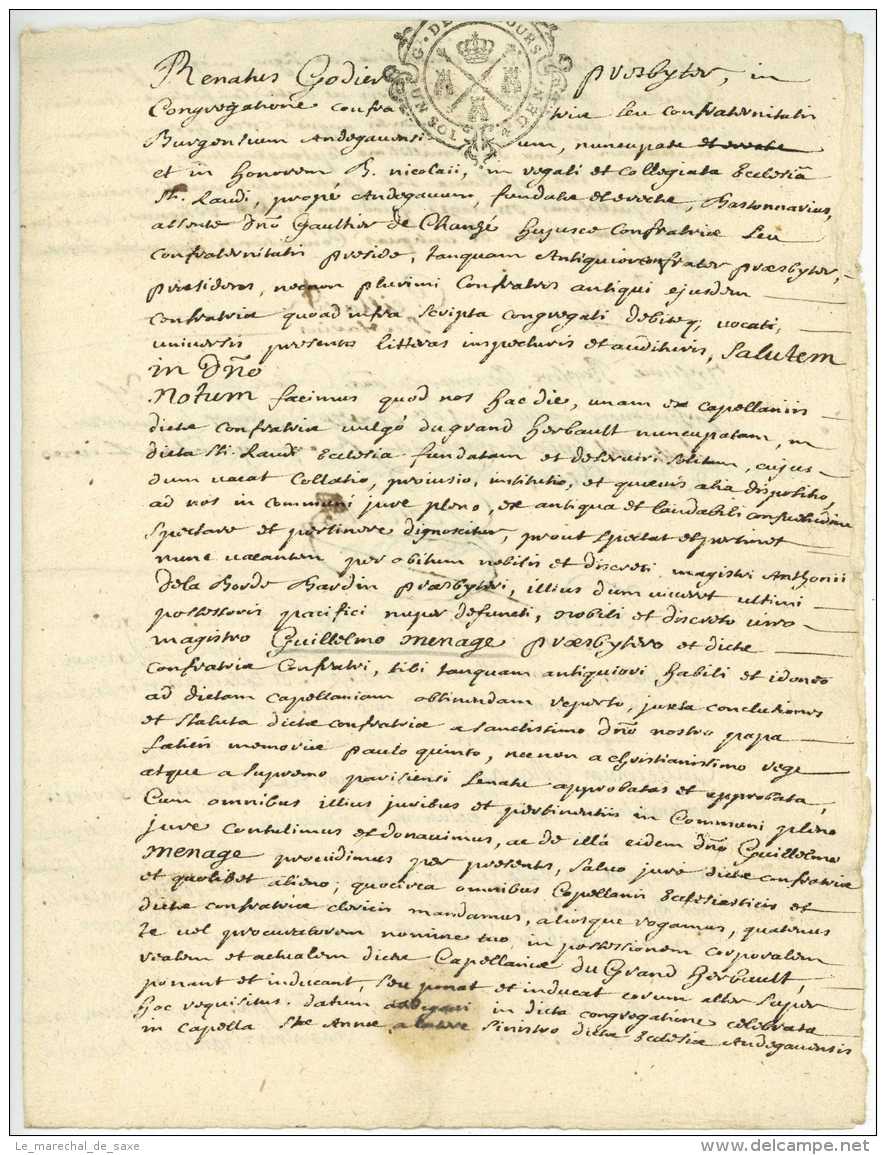 G. DE TOURS
UN SOL 4 DEN
Renatus Godier presbyter, in
Congregatione confratriæ seu confraternitatis
Burgensium Andegavensium, nuncupate et erecte
et in honorem B. nicolaii, in regali et Collegiata Ecclesiâ
Sti. Laudi, propè Andegavum, fundatæ et erectæ, Bastonnarius,
absente Dño Gaultier de Changé hujusce Confratriæ seu
confraternitatis præside, tanquam Antiquior confrater præsbyter,
præsidens, necnon plurimi Confratres antiqui ejusdem
confratriæ quoad infra scripta congregati debiteq; vocati,
universis presentes litteras inspecturis et audituris, Salutem
in Dño
Notum facimus quod nos hac die, unam ex capellaniis
dictæ confratriæ vulgó du grand herbault nuncupatam, in
dicta Sti. Laudi Ecclesia fundatam et deserviri solitam, cujus
dum vacat Collatio, provisio, institutio, et quævis alia dispositio,
ad nos in communi jure pleno, ex antiqua et laudabili consuetudine
spectare et pertinere dignoscitur, prout spectat et pertinet
nunc vacantem per obitum nobilis et discreti magistri Anthonii
Dela Borde Hardin præsbyteri, illius dum viveret ultimi
possessoris pacifici nuper defuncti, nobili et discreto viro
magistro Guillelmo Menage præsbytero et dictæ
confratriæ Confratri, tibi tanquam antiquiori, habili et idoneo
ad dictam capellaniam obtinendam reperto, juxta conclusiones
et statuta dictæ confratriæ a sanctissimo Dño nostro papa
fælicis memoriæ Paulo quinto, necnon a christianissimo rege
atque a supremo parisiensi senatu approbatas et approbata,
Cum omnibus illius juribus et pertinentiis in Communi pleno
jure contulimus et donavimus, ac de illâ eidem Dño Guillelmo
Menage providimus per presentes, salvo jure dictæ confratriæ
et quolibet alieno; quocirca omnibus Capellanis Ecclesiasticis et
dictæ confratriæ clericis mandamus, aliosque rogamus, quatenus
te vel procuratorem nomine tuo in possessionem corporalem
realem et actualem dictæ Capellaniæ du Grand herbault,
ponant et inducant, seu ponat et inducat eorum alter super
hoc requisitus. datum in dicta congregatione celebrata
in capella Stæ Annæ, a latere sinistro dictæ Ecclesiæ Andegavensis
Le_marechal_de_saxe
delcampe.net